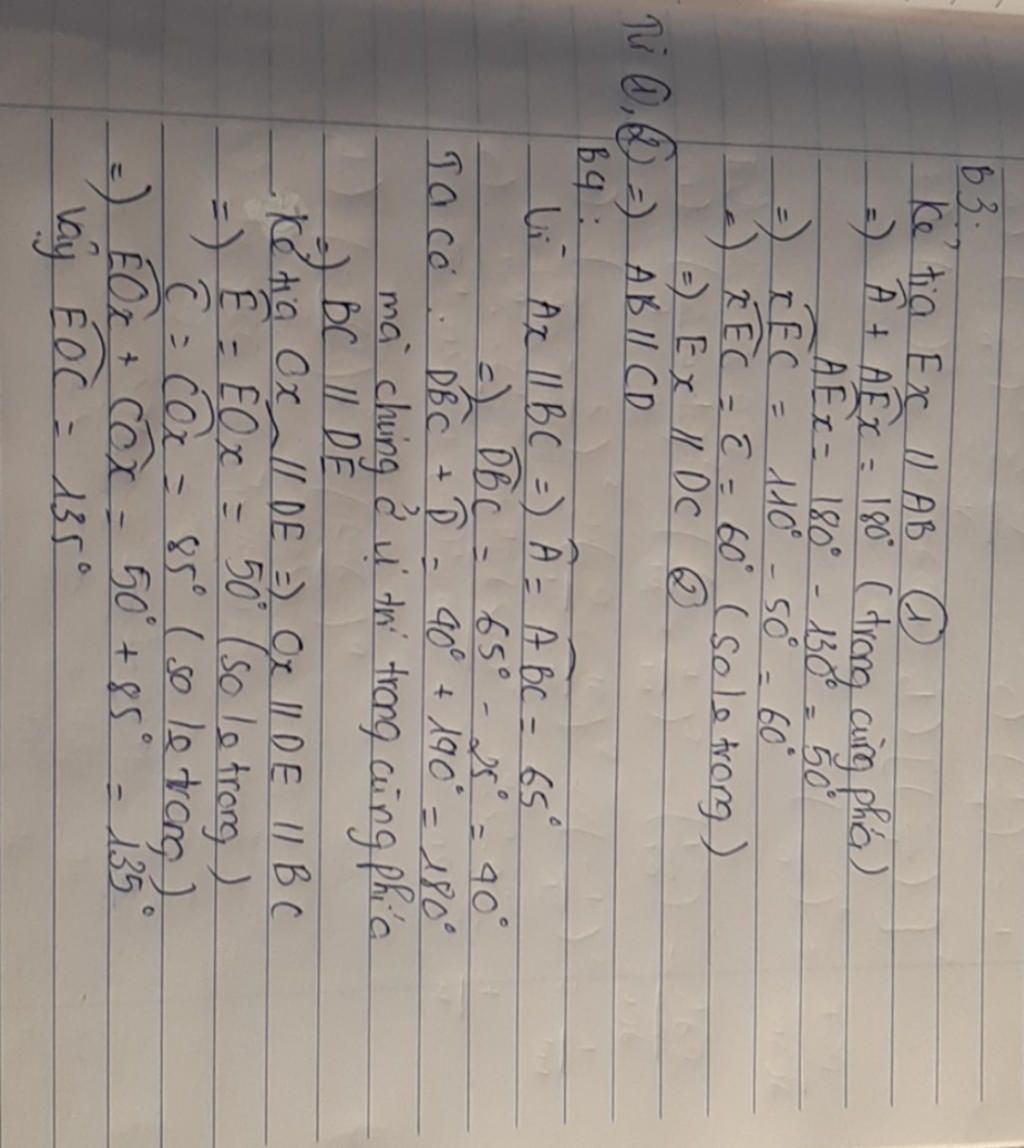 B3:
Kẻ tia Ex // AB ①
=) Â + AÊx = 180° (trong cùng phía)
AÊx = 180° - 130° = 50°
=) xÊC = 110° - 50° = 60°
=) xÊC = Ĉ = 60° (so le trong)
=) Ex // DC ②
Từ ①, ② =) AB // CD
B4:
Vì Ax // BC =) Â = AB̂C = 65°
=) DB̂C = 65° - 25° = 40°
Ta có: DB̂C + D̂ = 40° + 140° = 180°
mà chúng ở vị trí trong cùng phía
=) BC // DE
Kẻ tia Ox // DE =) Ox // DE // BC
=) Ê = EÔx = 50° (so le trong)
Ĉ = CÔx = 85° (so le trong)
=) EÔx + CÔx = 50° + 85° = 135°
Vậy EÔC = 135°